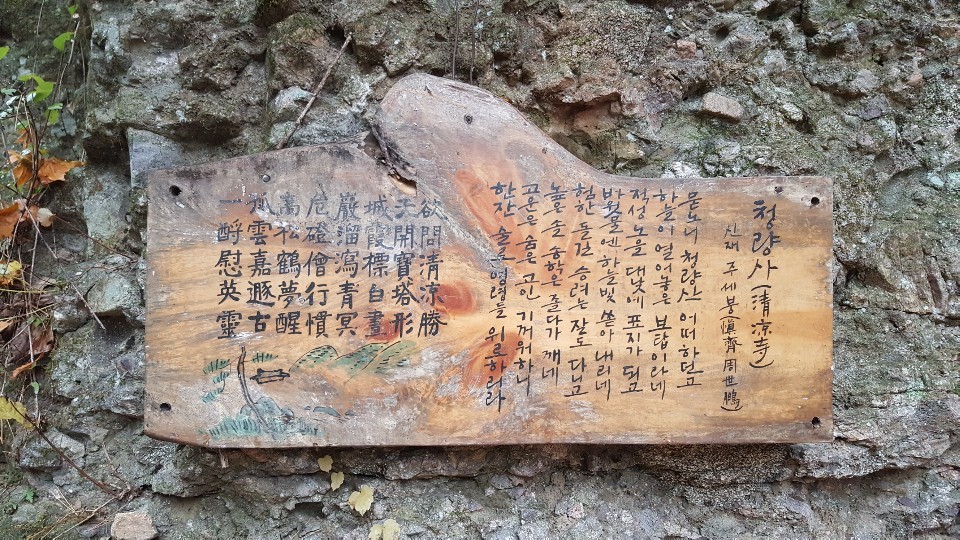 청량사(清凉寺)
신재 주세붕(愼齊周世鵬)
묻노니 청량산 어떠하던고
하늘이 열어놓은 보탑이라네
적성 노을 대낮에 표지가 되고
바윗물엔 하늘빛 쏟아 내리네
험한 돌길 승려는 잘도 다니고
높은 솔 송학은 졸다가 깨네
고운은 숨은 고인 기꺼워하니
한잔 술로 영령을 위로하리라
欲問清凉勝
天開寶塔形
城霞標白晝
巖溜瀉青冥
危磴僧行慣
高松鶴夢醒
孤雲嘉遯古
一酹慰英靈